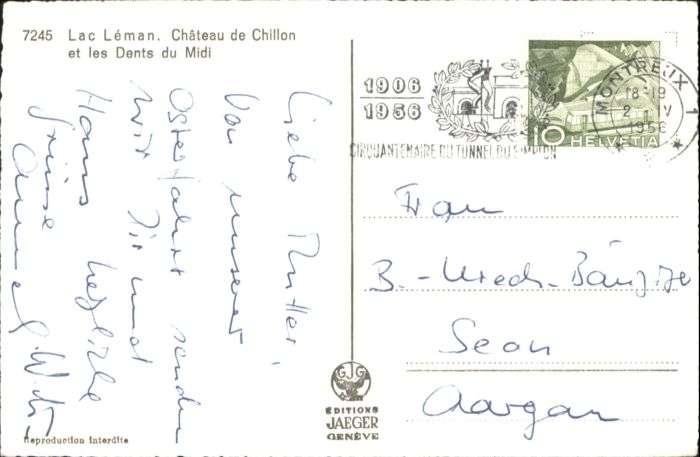 7245 Lac Léman. Château de Chillon
et les Dents du Midi
Liebe Mutter!
Von unserer
Osterfahrt senden
wir Dir und
Hans herzliche
Grüsse
1906
1956
CINQUANTENAIRE DU TUNNEL DU SIMPLON
MONTREUX 1
18-19
2. IV
1956
10 HELVETIA
Frau
B.-Urech-Bänziger
Seon
Aargau
GJG
ÉDITIONS
JAEGER
GENÈVE
Reproduction interdite